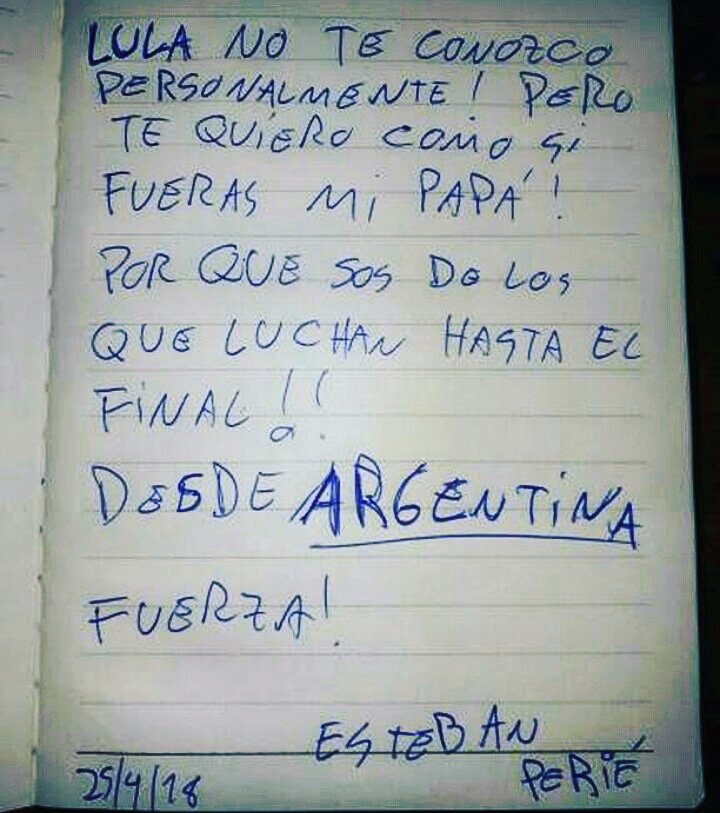 LULA NO TE CONOZCO
PERSONALMENTE! PERO
TE QUIERO COMO SI
FUERAS MI PAPÁ!
POR QUE SOS DE LOS
QUE LUCHAN HASTA EL
FINAL!!
DESDE ARGENTINA
FUERZA!
ESTEBAN
25/4/18 PERIÉ